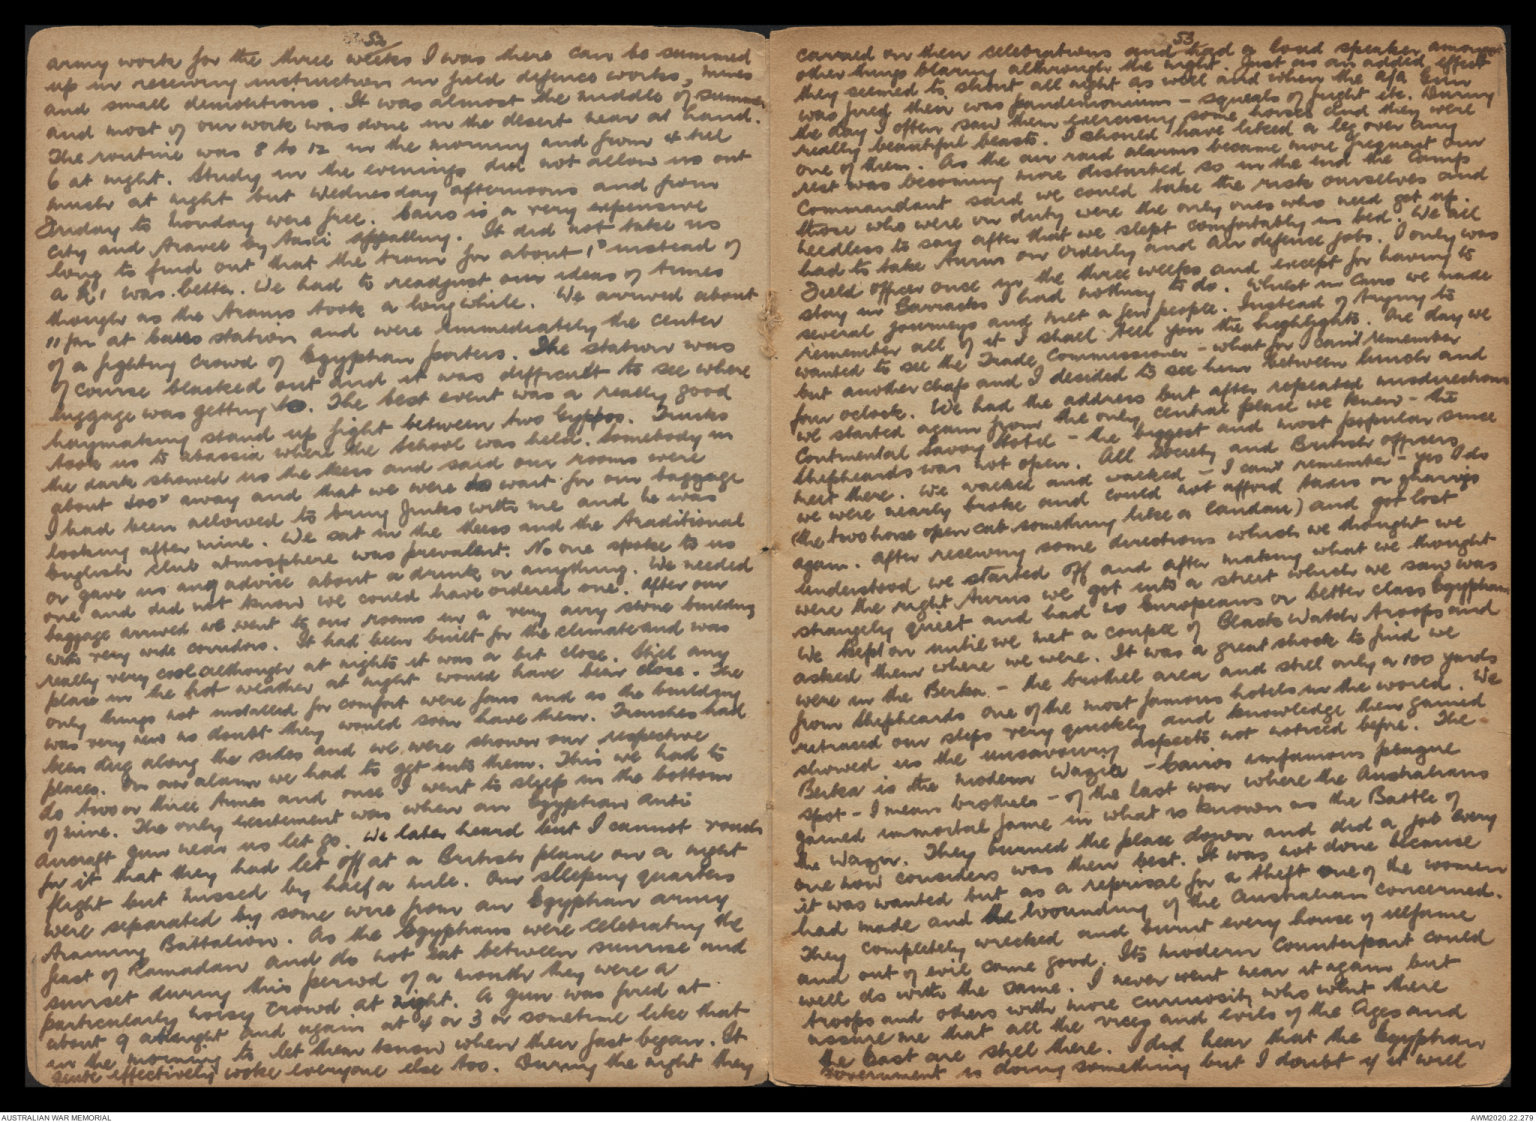 53
army work for the three weeks I was there can be summed
up in receiving instruction in field defence works, mines
and small demolitions. It was almost the middle of summer
and most of our work was done in the desert near at hand.
The routine was 8 to 12 in the morning and from 4 till
6 at night. Study in the evenings did not allow us out
much at night but Wednesday afternoons and from
Friday to Monday were free. Cairo is a very expensive
city and travel by taxi appalling. It did not take us
long to find out that the tram for about 1d instead of
a was better. We had to readjust our ideas of times
though as the trams took a long while. We arrived about
11 pm at Cairo station and were immediately the center
of a fighting crowd of Egyptian porters. The station was
of course blacked out and it was difficult to see where
luggage was getting to. The best event was a really good
haymaking stand up fight between two Gyppos. Trucks
took us to Abassia where the School was held. Somebody in
the dark showed us the Mess and said our rooms were
about away and that we were to wait for our baggage
I had been allowed to bring Jinks with me and he was
looking after mine. We sat in the Mess and the traditional
English club atmosphere was prevalent. No one spoke to us
or gave us any advise about a drink or anything. We needed
one and did not know we could have ordered one. After our
baggage arrived we went to our rooms in a very airy stone building
with very wide corridors. It had been built for the climate and was
really very cool although at nights it was a bit close. Still any
place in the hot weather at night would have been close. The
only things not installed for comfort were fans and as the building
was very new no doubt they would soon have them. Trenches had
been dug along the sides and we were shown our respective
places. On an alarm we had to get into them. This we had to
do two or three times and once I went to sleep in the bottom
of mine. The only excitement was when an Egyptian anti
aircraft gun near us let go. We later heard but I cannot vouch
for it that they had let off at a British plane on a night
flight but missed by half a mile. Our sleeping quarters
were separated by some were from an Egyptian army
training Battalion. As the Egyptians were celebrating the
feast of Ramadan and do not eat between sunrise and
sunset during this period of a month they were a
particularly noisy crowd at night. A gun was fired at
about 9 at night and again at 4 or 3 or sometime like that
in the morning to let them know when their fast began. It
quite effectively woke everyone else too. During the night they
53
carried on their celebrations and had a loud speaker amongst
other things blaring all through the night. Just as an added effect
they seemed to shout all night as well and when the A/A gun
was fired there was pandemonium - squeals of fright etc. During
the day I often saw them exercising some horses and they were
really beautiful beasts. I should have liked a leg over any
one of them. As the air raid alarms became more frequent our
rest was becoming more disturbed so in the end the Camps
Commandant said we could take the risk ourselves and
those who were on duty were the only ones who need get up.
Needless to say after that we slept comfortably in bed. We all
had to take turns on Orderly and air defense jobs. I only was
Field officer once in the three weeks and except for having to
stay in Barracks I had nothing to do. Whilst in Cairo we made
several journeys and met a few people. Instead of trying to
remember all of it I shall tell you the highlights. One day we
wanted to see the Trade Commissioner - what for can't remember
but another chap and I decided to see him between lunch and
four oclock. We had the address but after repeated misdirections
we started again from the only central place we knew - the
Continental Savoy Hotel - the biggest and most popular since
Shepheards was not open. All Society and British officers
meet there. We walked and walked - I can't remember - yes I do
we were nearly broke and could not afford taxis or gharris
(the two horse open cab something like a landau) and got lost
again. After receiving some directions which we thought we
understood we started off and after making what we thought
were the right turns we got into a street which we saw was
strangely quiet and had no Europeans or better class Egyptians
We kept on until we met a couple of Black Watch troops and
asked them where we were. It was a great shock to find we
were in the Berka - the brothel area and still only a 100 yards
from Shepheards one of the most famous hotels in the world. We
retraced our steps very quickly and knowledge then gained
showed us the unsavoury aspects not noticed before. The
Berka is the modern Wazir - Cairos infamous plague
spot - I mean brothels - of the last war where the Australians
gained immortal fame in what is known as the Battle of
the Wazir. They burned the place down and did a job every
one now considers was their best. It was not done because
it was wanted but as a reprisal for a theft one of the women
had made and the wounding of the Australian concerned.
They completely wrecked and burnt every house of illfame
and out of evil came good. Its modern counterpart could
well do with the same. I never went near it again but
troops and others with more curiosity who went there
assure me that all the vices and evils of the Ages and
the East are still there. I did hear that the Egyptian
Government is doing something but I doubt if it will
AUSTRALIAN WAR MEMORIAL
AWM2020.22.279